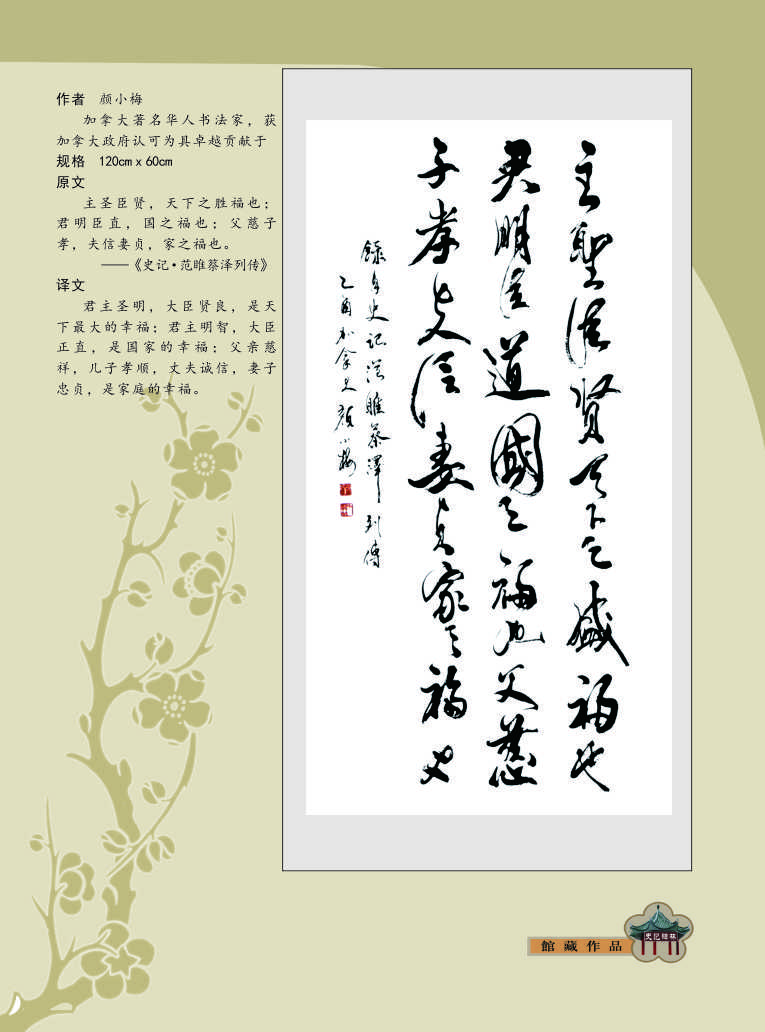 作者 颜小梅
加拿大著名华人书法家，获
加拿大政府认可为具卓越贡献于
规格 120cm x 60cm
原文
主圣臣贤，天下之胜福也；
君明臣直，国之福也；父慈子
孝，夫信妻贞，家之福也。
——《史记·范睢蔡泽列传》
译文
君主圣明，大臣贤良，是天
下最大的幸福；君主明智，大臣
正直，是国家的幸福；父亲慈
祥，儿子孝顺，丈夫诚信，妻子
忠贞，是家庭的幸福。
主聖臣贤天下之盛福也
君明臣道國之福也父慈
子孝夫信妻貞家之福也
錄自史记范雎蔡澤列傳
乙酉加拿大顔小梅
館藏作品
史记碑林